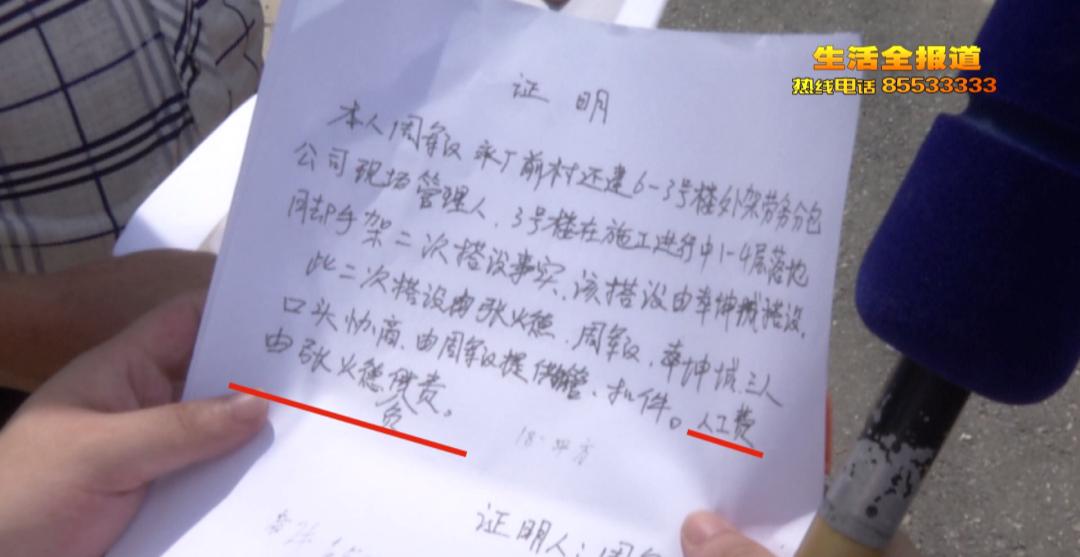 生活全报道
热线电话 85533333
证明
本人周军仪 前村还建6-3号楼外架劳务分包
公司现场管理人、3号楼在施工进行中1-4层落地
脚手架二次搭设事实、该搭设由 坤城搭设。
此二次搭设由张火德、周军仪、 坤城三人
口头协商、由周军仪提供钢管、扣件。人工费
由张火德负责。
18 平方
证明人:周